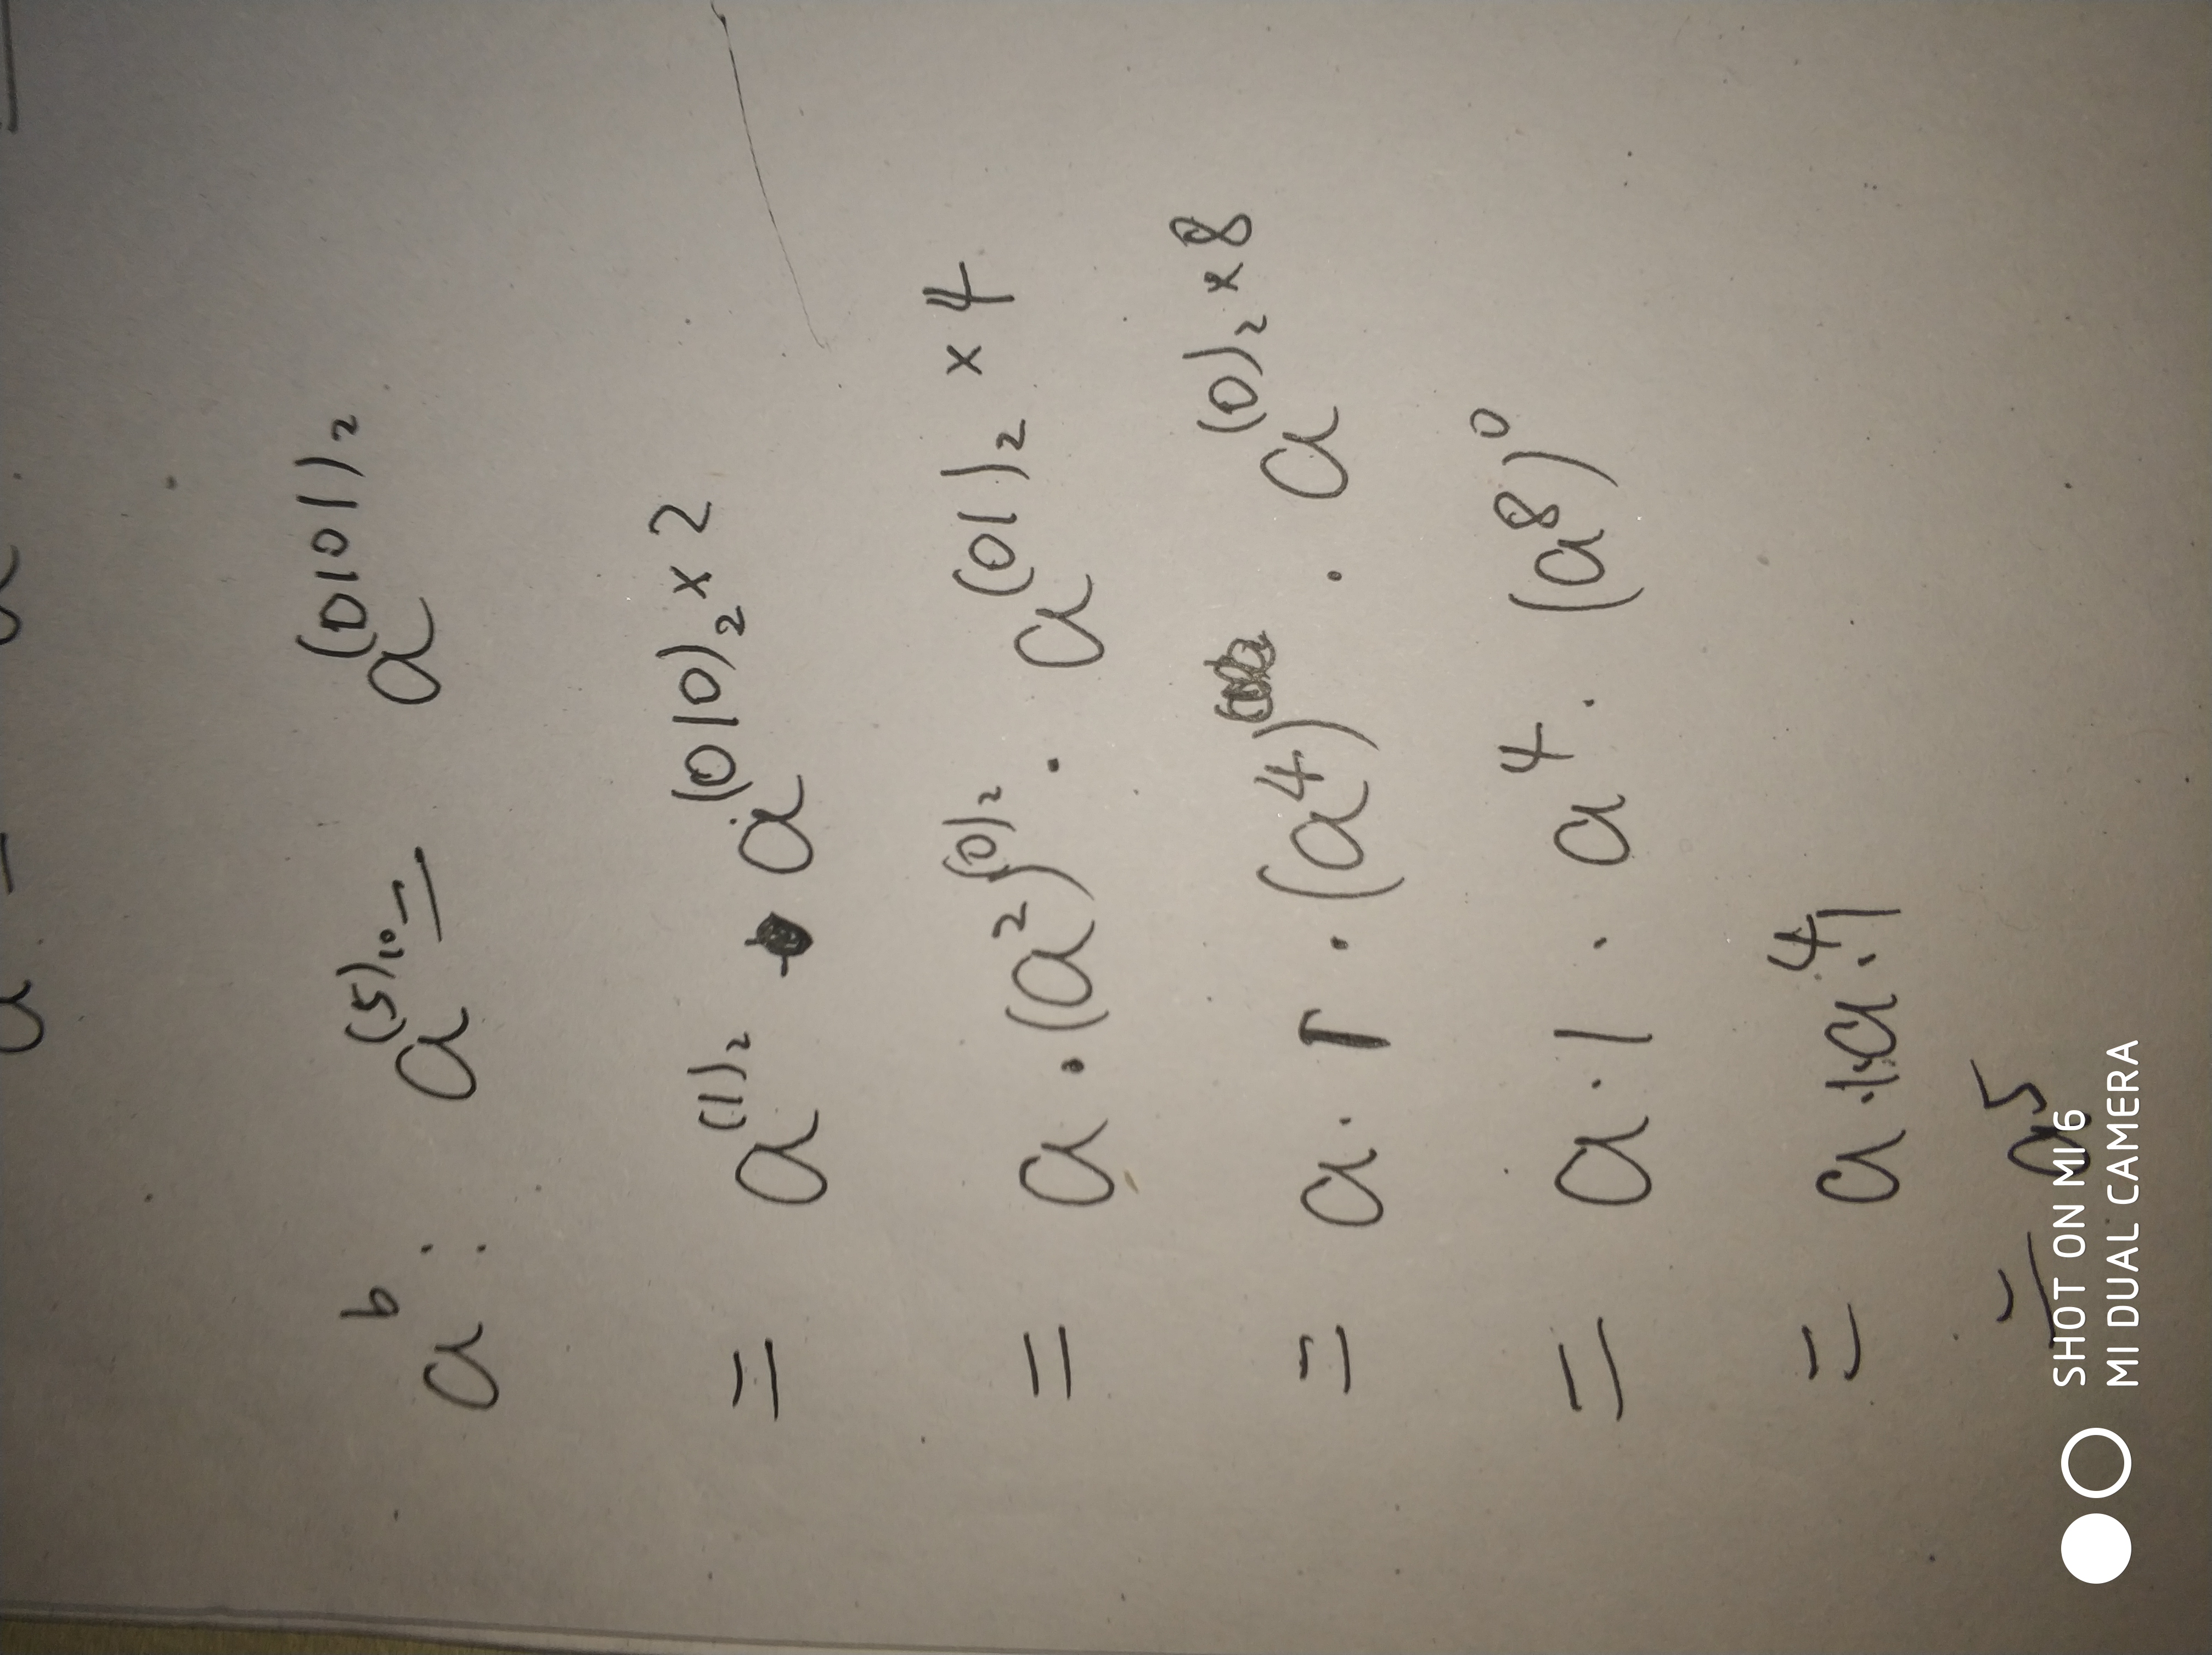 a^b : a^(5)₁₀ = a^(0101)₂
= a^(1)₂ · a^(010)₂ × 2
= a · (a²)^(0)₂ · a^(01)₂ × 4
= a · 1 · (a⁴) · a^(0)₂ × 8
= a · 1 · a⁴ · (a⁸)⁰
= a · 1 · a⁴ · 1
= a⁵
SHOT ON MI 6
MI DUAL CAMERA